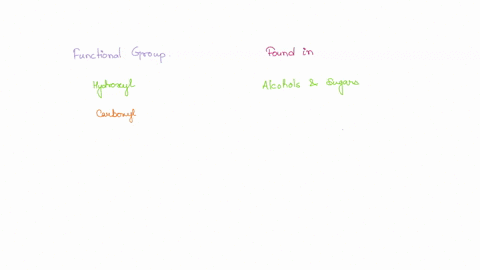 Functional Group Found in
Hydroxyl Alcohols & Sugars
Carbonyl